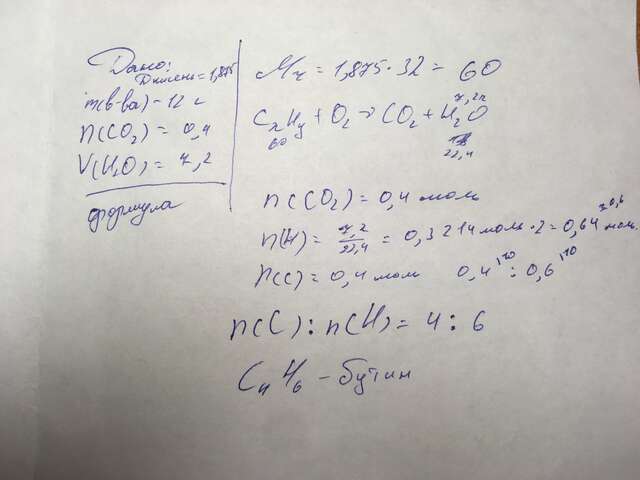 Дано:
Dкислень = 1,875
m(в-ва) = 12 г
n(CO₂) = 0,4
V(H₂O) = 7,2
формула
Mr = 1,875 · 32 = 60
7,2л
CxHy + O₂ → CO₂ + H₂O
60
22,4
n(CO₂) = 0,4 моль
n(H) = 7,2/22,4 = 0,3214 моль · 2 = 0,64 моль
≈0,6
n(C) = 0,4 моль 0,4 |·10 : 0,6 |·10
n(C) : n(H) = 4 : 6
C₄H₆ – бутин